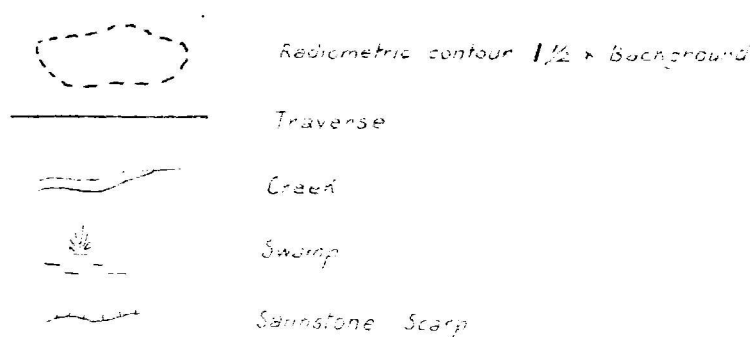 Radiometric contour 1½ × Background
Traverse
Creek
Swamp
Sandstone Scarp